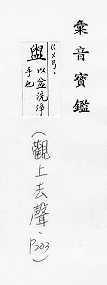 彙音寶鑑
ㄍㄨㄢˋ
盥 以盆洗淨手也
(觀上去聲、P303)